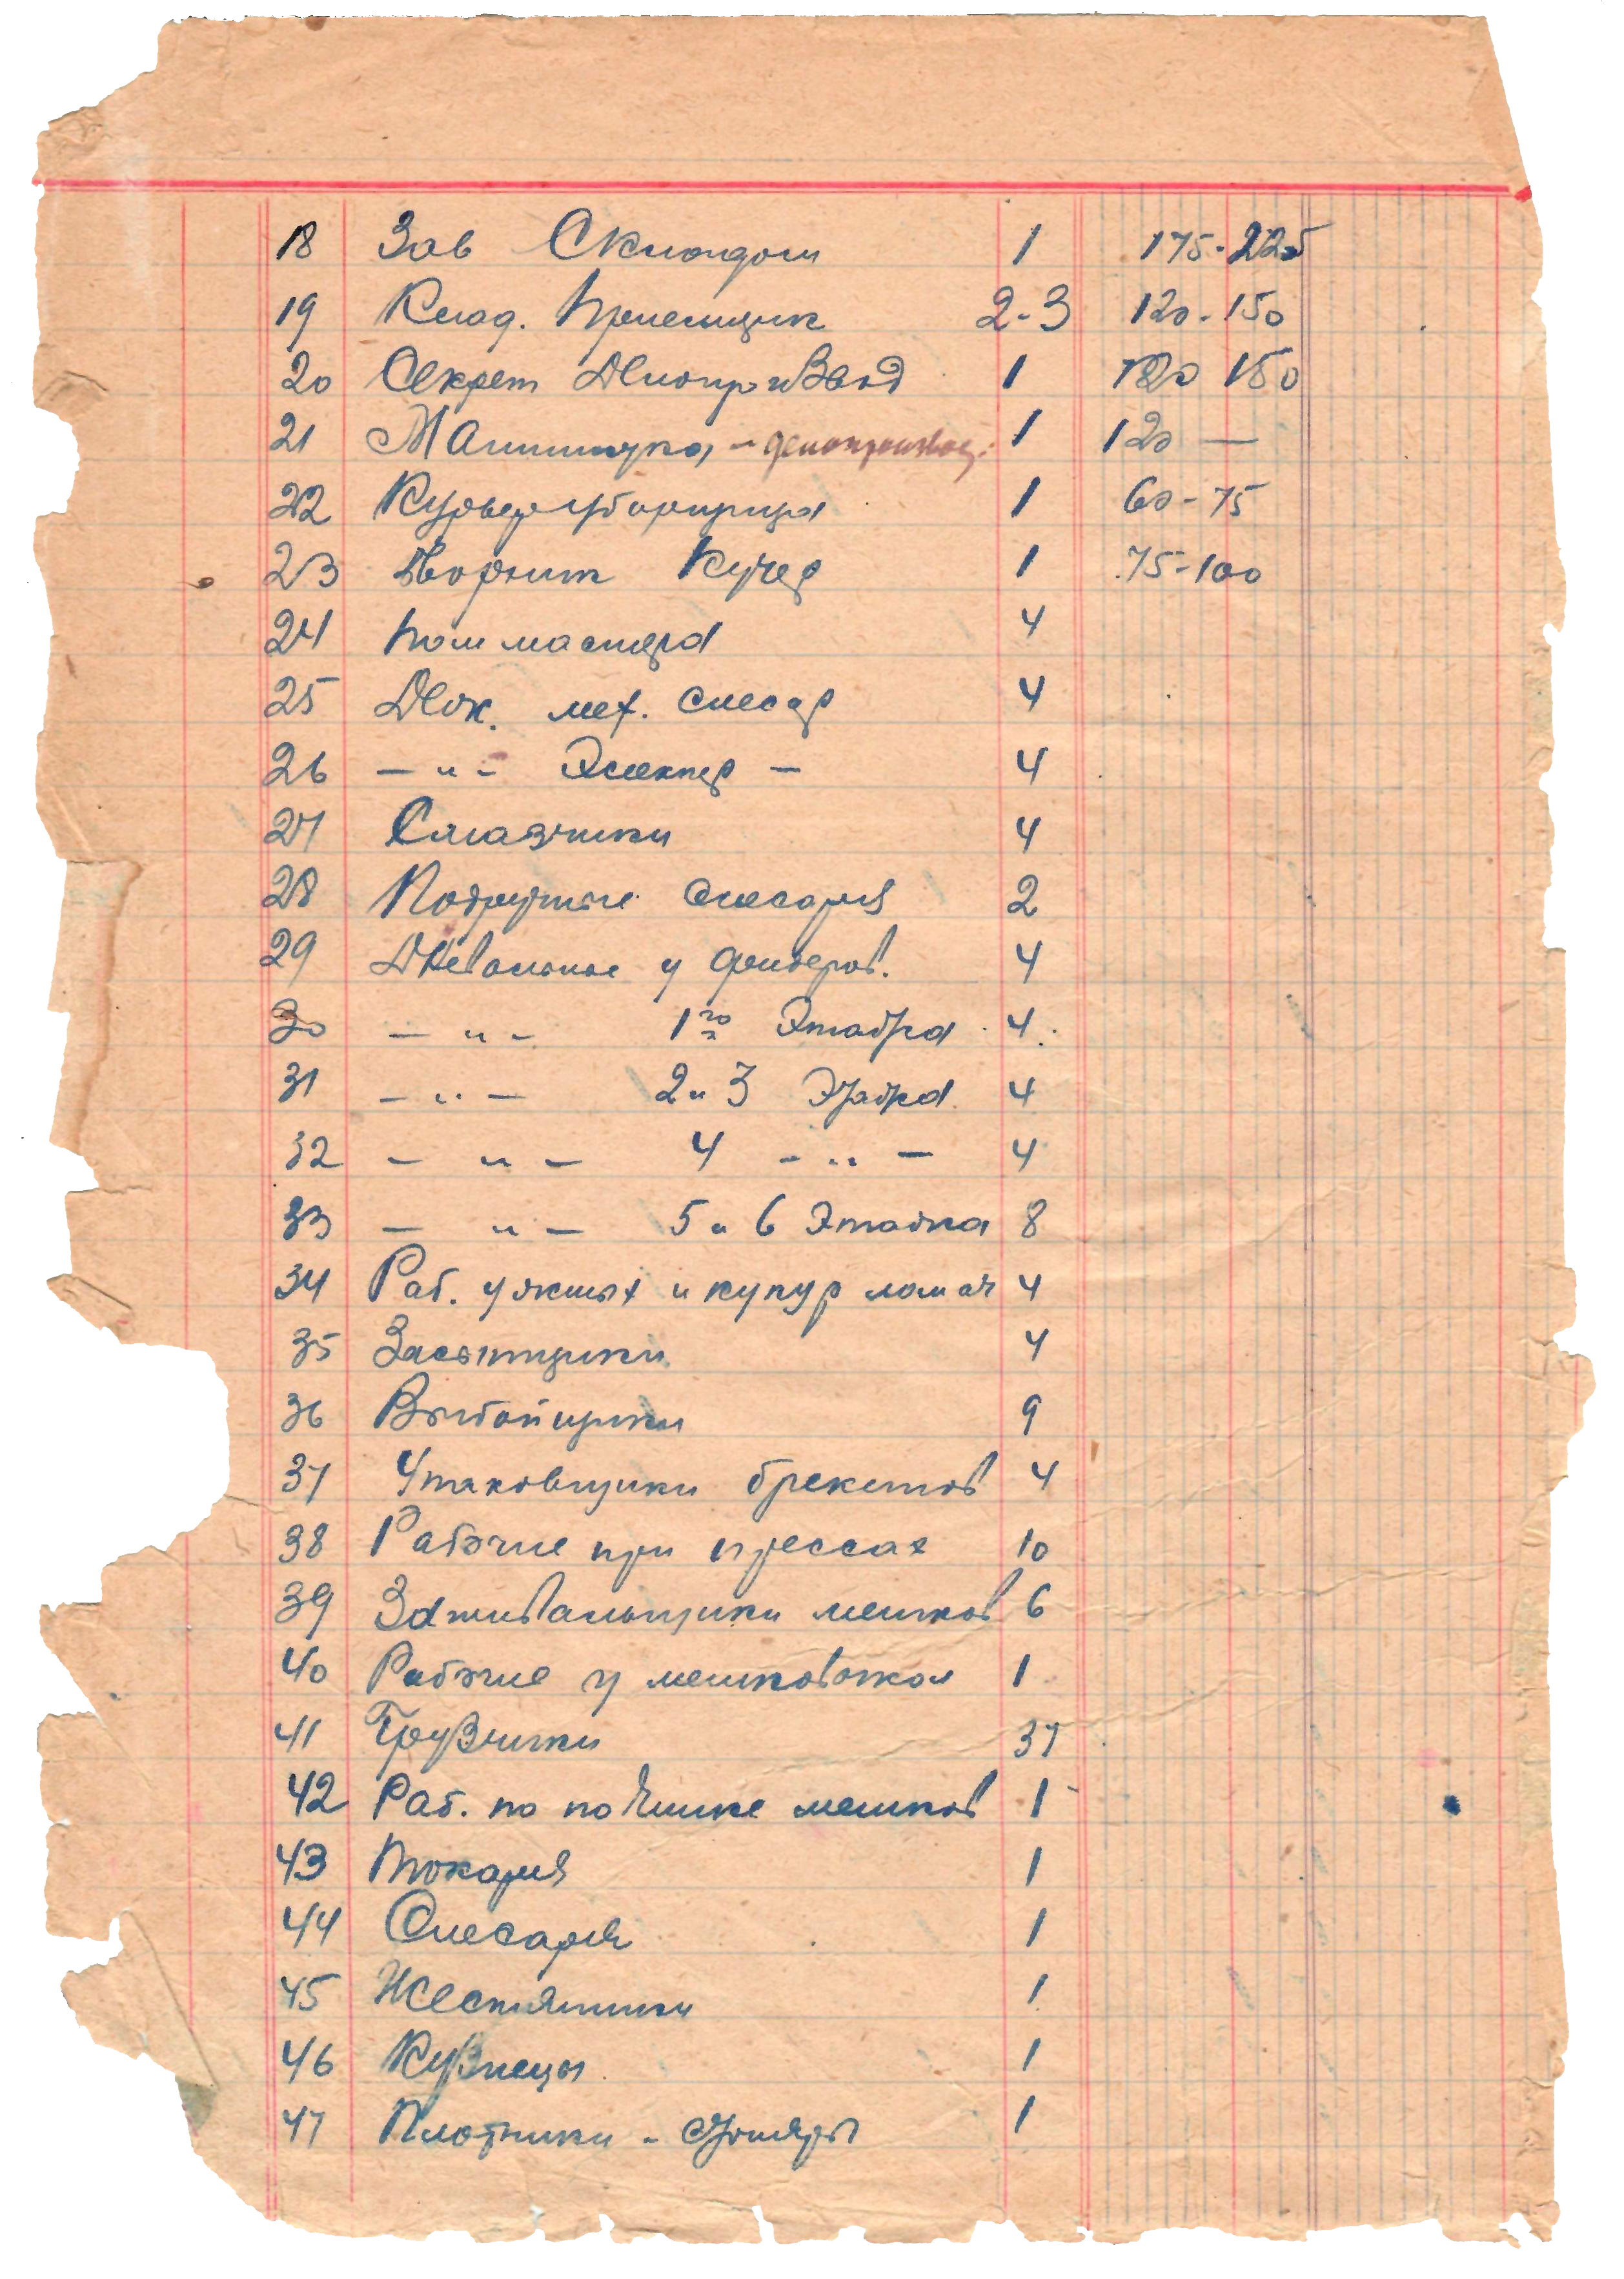 18 Зав Складом 1 175-225
19 Клад. Приемщик 2-3 120-150
20 Секрет Делопроизвод 1 120 150
21 Машинистка - делопроизвод. 1 120 —
22 Курьер уборщица 1 60-75
23 Дворник Кучер 1 75-100
24 Пом мастера 4
25 Деж. мех. слесар 4
26 — и - Электер — 4
27 Смазчики 4
28 Подручные слесаря 2
29 Дневальные у фильеров. 4
30 — и - 1го Этажа 4
31 — и — 2 и 3 Этажа 4
32 — и — 4 — и — 4
33 — и — 5 и 6 Этажа 8
34 Раб. у и кукур 4
35 Засыпщики 4
36 Выбойщики 9
37 Упаковщики брекетов 4
38 Рабочие при прессах 10
39 Зашивальщики мешков 6
40 Рабочие у 1
41 Грузчики 37
42 Раб. по починке мешков 1
43 Токаря 1
44 Слесаря 1
45 Жестянщики 1
46 Кузнецы 1
47 Плотники - столяры 1